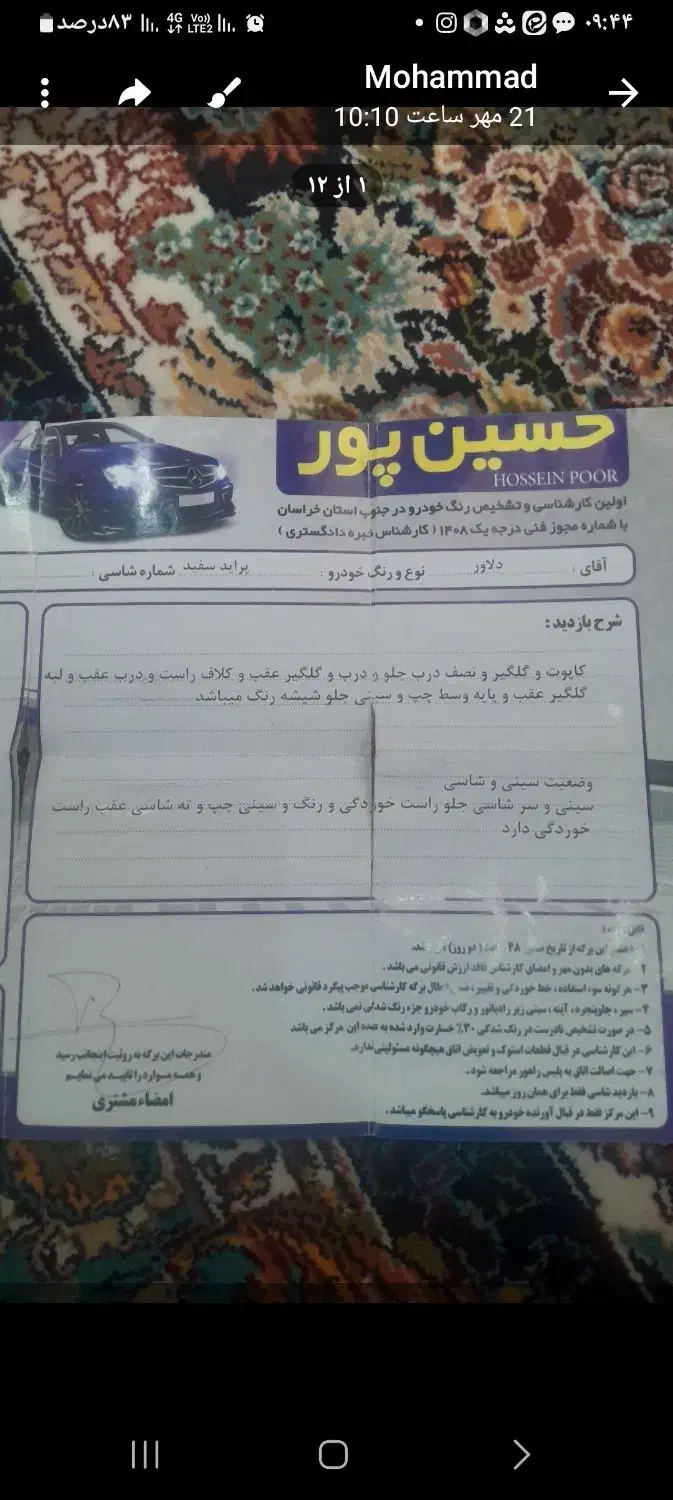 ۰۹:۴۴
۸۳درصد
4G
Vo))
LTE2
Mohammad
21 مهر ساعت 10:10
۱ از ۱۲
حسین پور
HOSSEIN POOR
اولین کارشناسی و تشخیص رنگ خودرو در جنوب استان خراسان
با شماره مجوز فنی درجه یک ۱۴۰۸ ( کارشناس خبره دادگستری )
آقای : دلاور نوع و رنگ خودرو : پراید سفید شماره شاسی :
شرح بازدید :
کاپوت و گلگیر و نصف درب جلو و درب و گلگیر عقب و کلاف راست و درب عقب و لبه
گلگیر عقب و پایه وسط چپ و سینی جلو شیشه رنگ میباشد
وضعیت سینی و شاسی
سینی و سر شاسی جلو راست خوردگی و رنگ و سینی چپ و ته شاسی عقب راست
خوردگی دارد
این برگه از تاریخ ۴۸ ( دو روز )
۲- برگه های بدون مهر و امضای کارشناس فاقد ارزش قانونی می باشد.
۳- هرگونه سوء استفاده، خط خوردگی و تغییر، برگه کارشناسی موجب پیگرد قانونی خواهد شد.
۴- سپر ، جلوپنجره ، آینه ، سینی زیر رادیاتور و رکاب خودرو جزء رنگ شدگی نمی باشد.
۵- در صورت تشخیص نادرست در رنگ شدگی ۳۰٪ خسارت وارد شده به عهده این مرکز می باشد
۶- این کارشناسی در قبال قطعات استوک و تعویض اتاق هیچگونه مسئولیتی ندارد.
۷- جهت اصالت اتاق به پلیس راهور مراجعه شود.
۸- بازدید شاسی فقط برای همان روز میباشد.
۹- این مرکز فقط در قبال آورنده خودرو به کارشناسی پاسخگو میباشد.
مندرجات این برگه به روئیت اینجانب رسید
و همه موارد را تایید می نمایم
امضاء مشتری